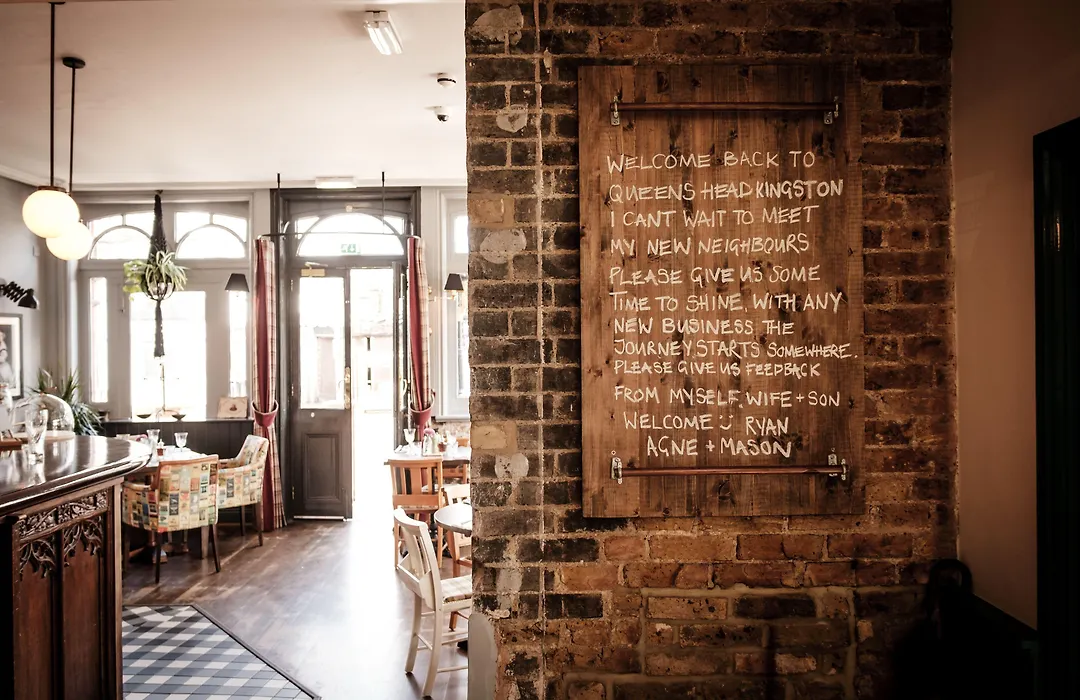 WELCOME BACK TO
QUEENS HEAD KINGSTON
I CANT WAIT TO MEET
MY NEW NEIGHBOURS
PLEASE GIVE US SOME
TIME TO SHINE, WITH ANY
NEW BUSINESS THE
JOURNEY STARTS SOMEWHERE.
PLEASE GIVE US FEEDBACK
FROM MYSELF, WIFE + SON
WELCOME :) RYAN
AGNE + MASON